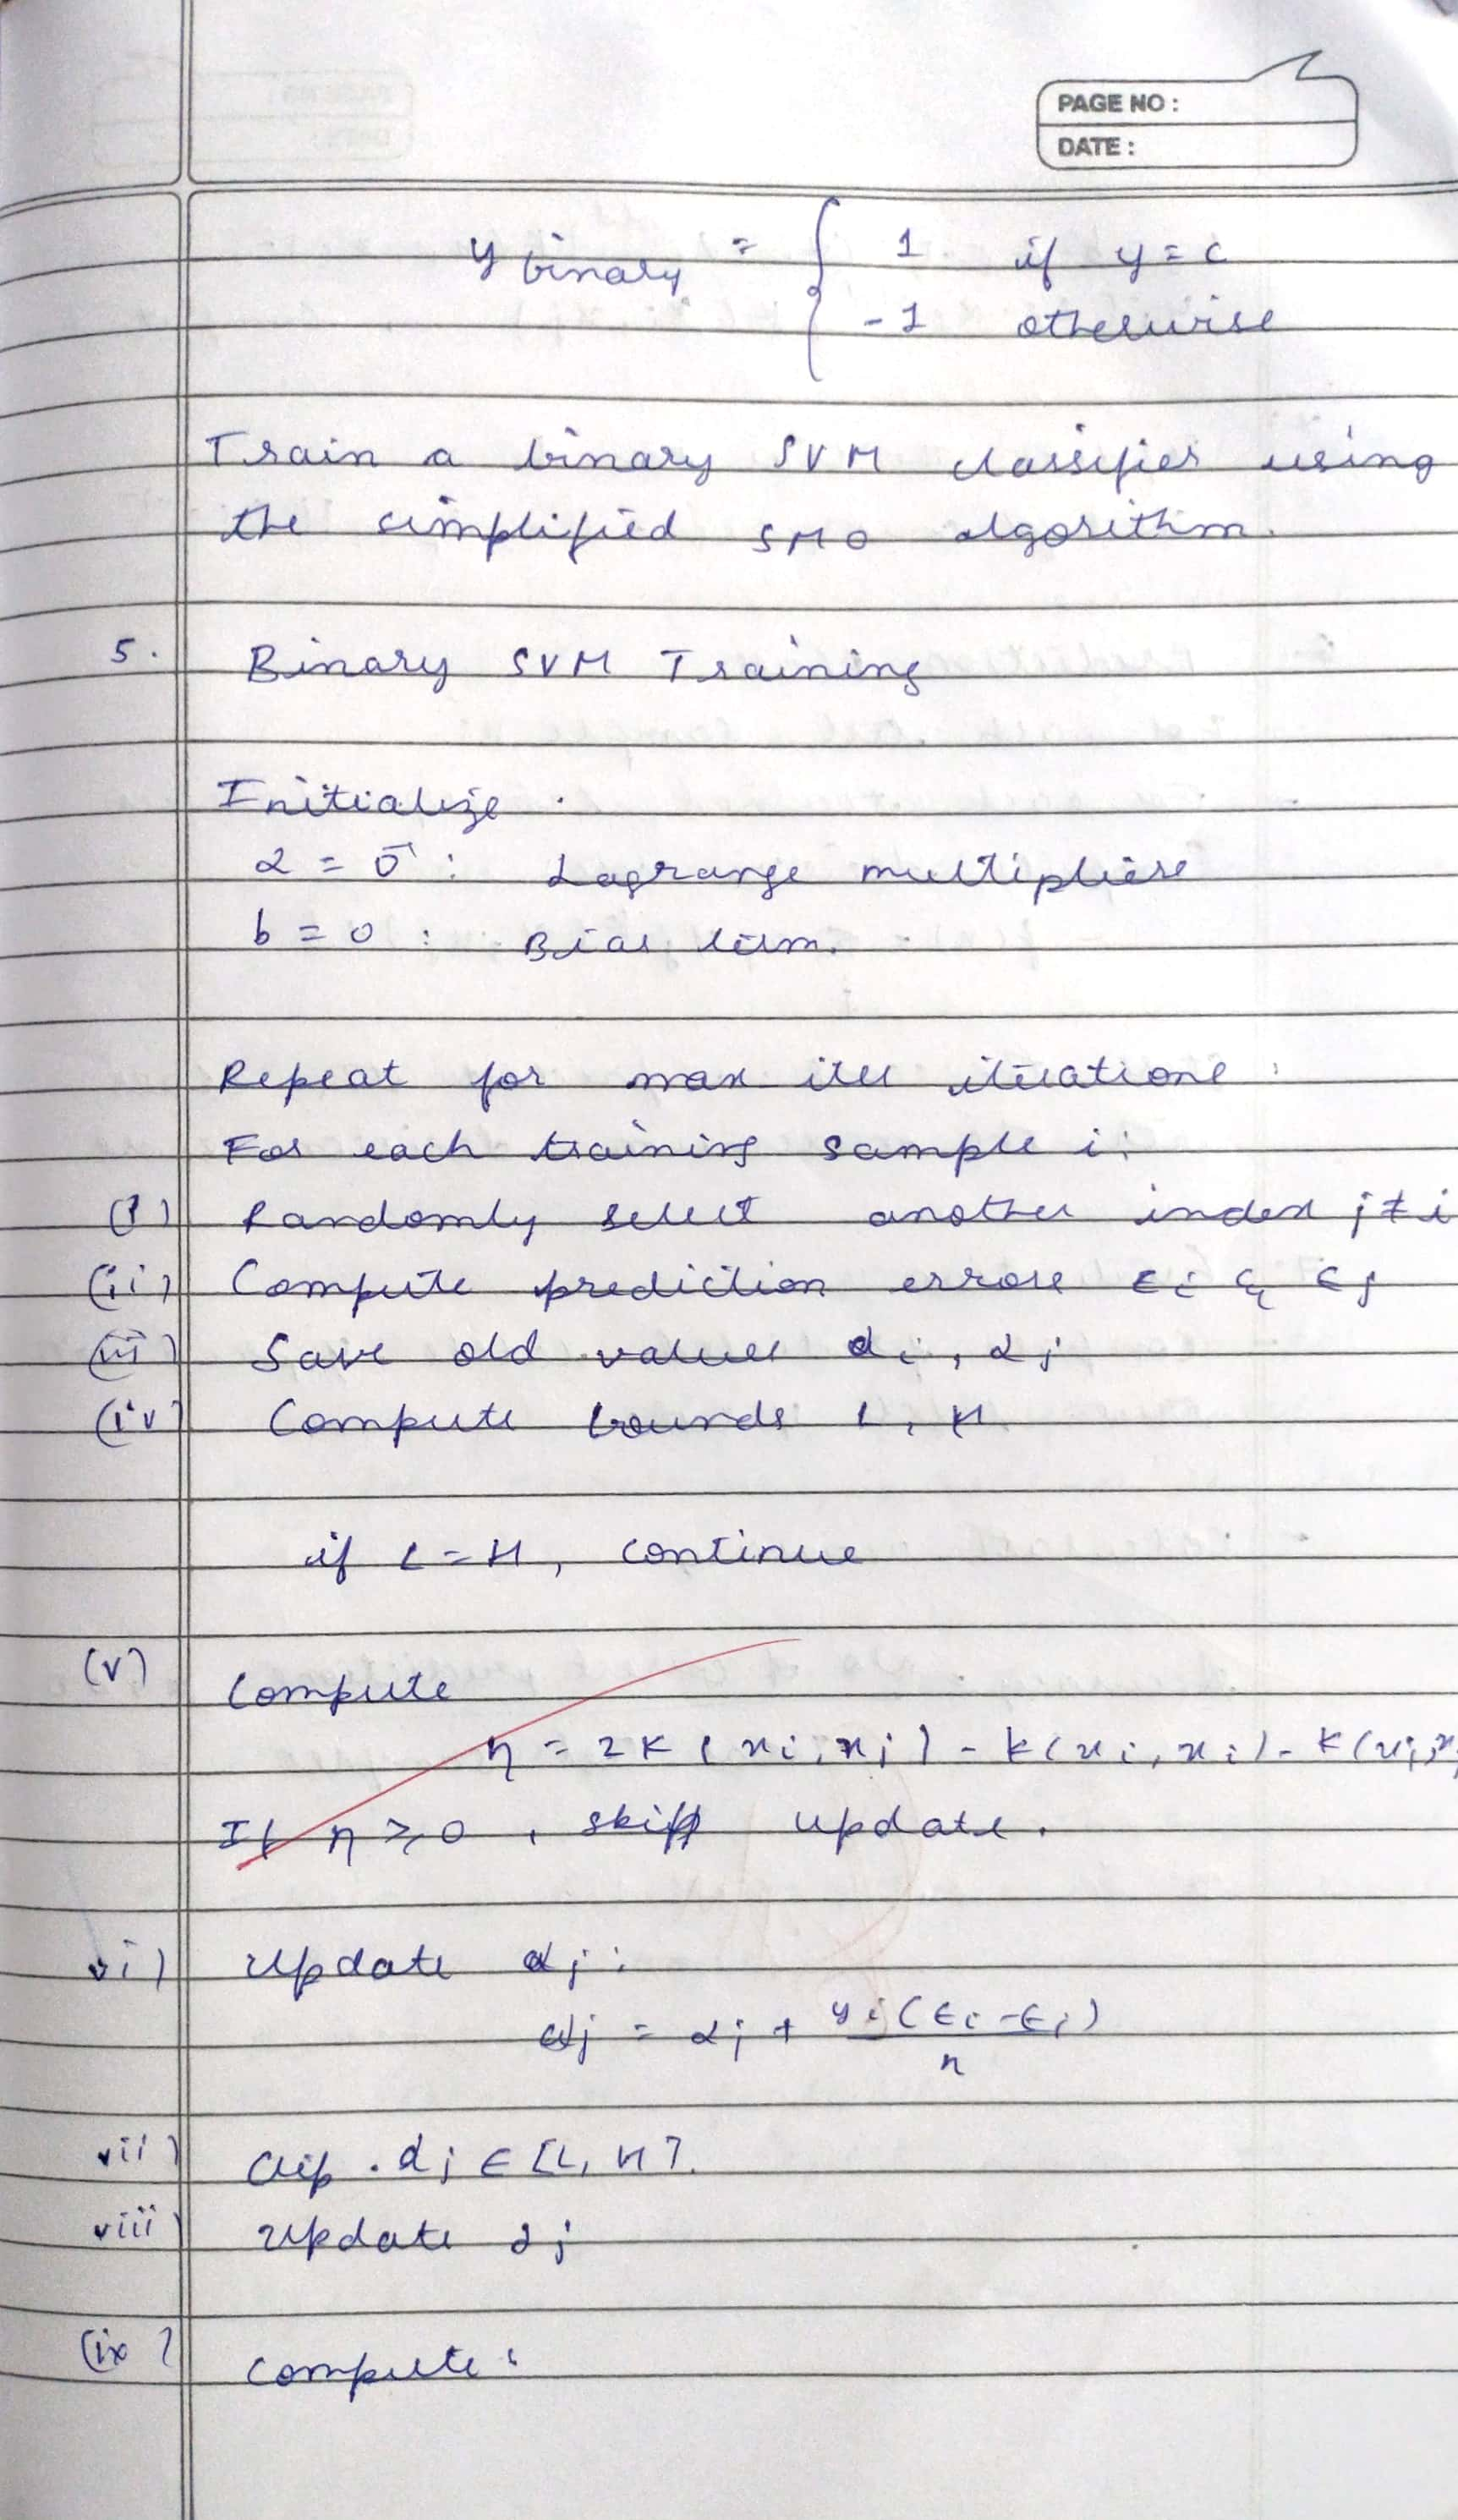 PAGE NO :
DATE :
y binary = { 1 if y = c
-1 otherwise
Train a binary SVM classifier using
the simplified SMO algorithm.
5. Binary SVM Training
Initialize :
α = 0 : Lagrange multipliers
b = 0 : Bias term.
Repeat for max iter iterations :
For each training sample i :
(i) Randomly select another index j ≠ i
(ii) Compute prediction errors Ei & Ej
(iii) Save old values αi , αj
(iv) Compute bounds L, H
if L = H, continue
(v) Compute
η = 2K(xi, xj) - K(xi, xi) - K(xj, x
If η ≥ 0 , skip update.
vi) Update αj :
αj = αj + yj (Ei - Ej) / η
vii) Clip . αj ∈ [L, H].
viii) Update αj
(ix) Compute :